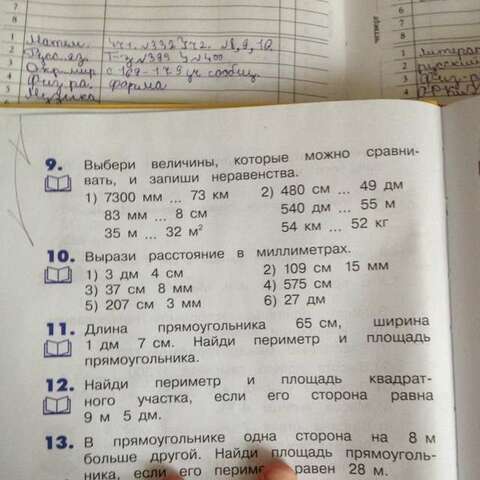 1 Матем. Ч1. №332 Ч2. №8,9,10
2 Русс.яз. Т-у №399 У №400
3 Окр.мир с 169-179 уч сообщ.
4 Физ-ра. форма
5 Музыка
1 литерат
2 русский
3 Физ-р
9. Выбери величины, которые можно сравни-
вать, и запиши неравенства.
1) 7300 мм ... 73 км 2) 480 см ... 49 дм
83 мм ... 8 см 540 дм ... 55 м
35 м ... 32 м² 54 км ... 52 кг
10. Вырази расстояние в миллиметрах.
1) 3 дм 4 см 2) 109 см 15 мм
3) 37 см 8 мм 4) 575 см
5) 207 см 3 мм 6) 27 дм
11. Длина прямоугольника 65 см, ширина
1 дм 7 см. Найди периметр и площадь
прямоугольника.
12. Найди периметр и площадь квадрат-
ного участка, если его сторона равна
9 м 5 дм.
13. В прямоугольнике одна сторона на 8 м
больше другой. Найди площадь прямоуголь-
ника, если его периметр равен 28 м.